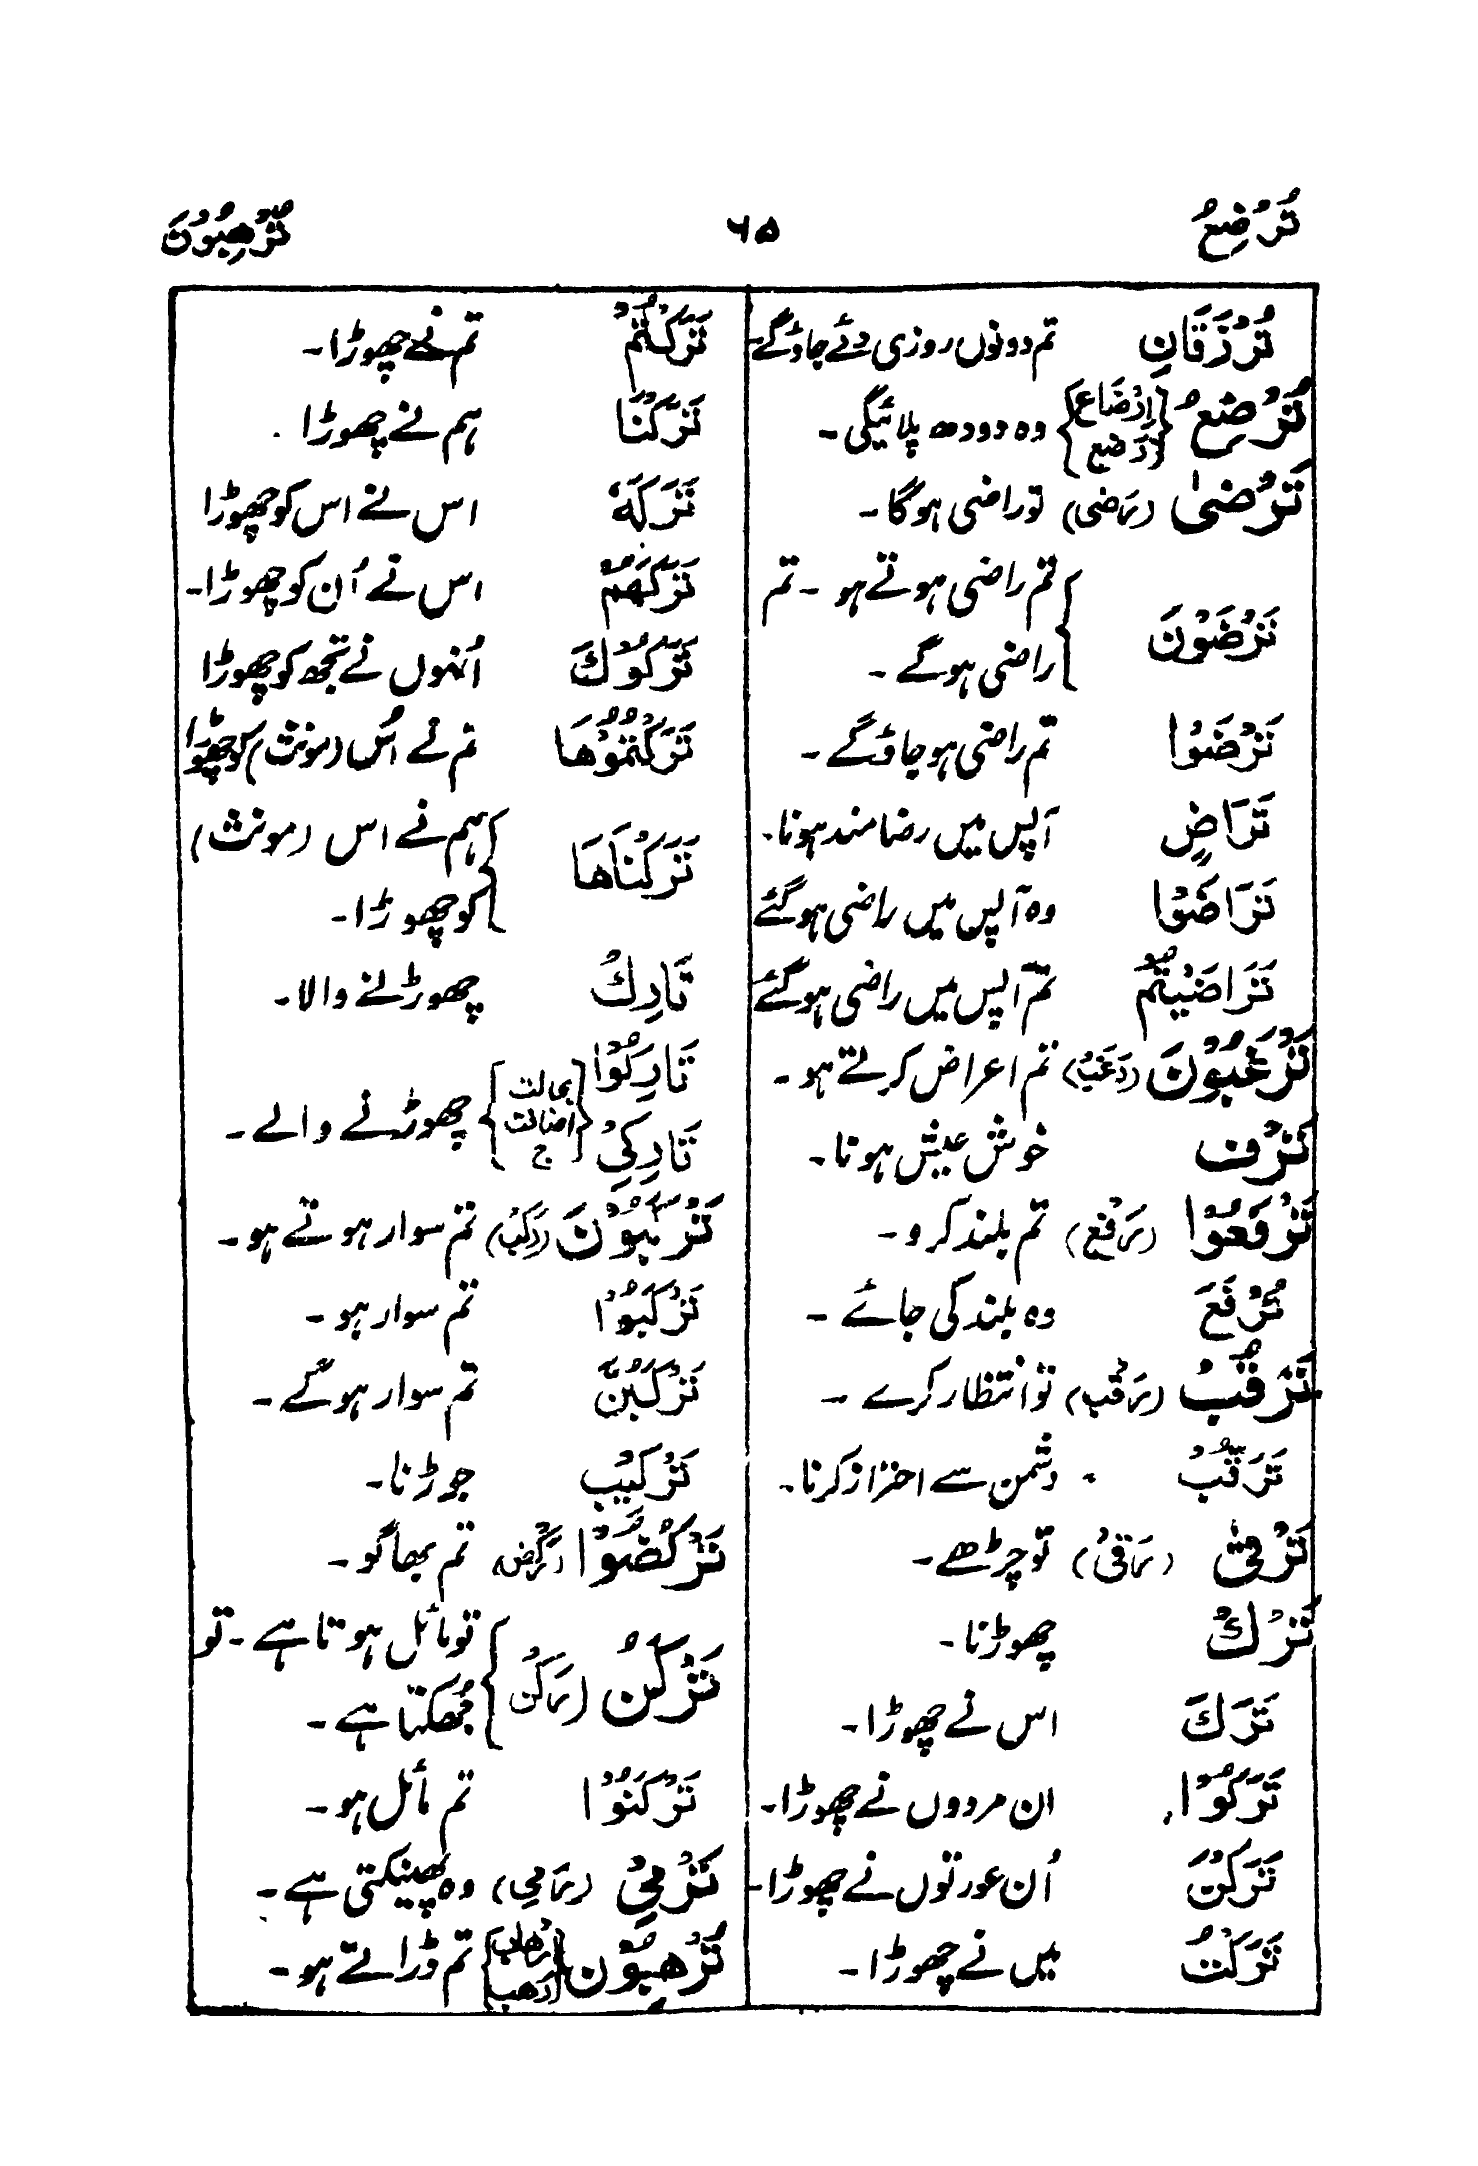 تُرْضِعُ ۶۵ تُرْهِبُوْنَ
تُرْزَقَانِ تم دونوں روزی دئے جاؤگے-
تُرْضِعُ {اِرْضَاع (رضع)} وہ دودھ پلائیگی۔
تَرْضٰی (رَضِیَ) تو راضی ہوگا۔
تَرْضَوْنَ تم راضی ہوتے ہو۔ تم
راضی ہوگے۔
تَرْضَوْا تم راضی ہو جاؤگے۔
تَرَاضٍ آپس میں رضا مند ہونا۔
تَرَاضَوْا وہ آپس میں راضی ہوگئے
تَرَاضَيْتُمْ تم آپس میں راضی ہوگئے
تَرْغَبُوْنَ (رَغَبُ) تم اعراض کرتے ہو۔
تَرْف خوش عیش ہونا۔
تَرْفَعُوْا (رَفْع) تم بلند کرو۔
تُرْفَعَ وہ بلند کی جائے۔
تَرْقُبْ (رَقْب) تو انتظار کرے۔
تَرَقُّبْ دشمن سے احتراز کرنا۔
تَرْقٰی (رَقْیُ) تو چڑھے۔
تَرْكُ چھوڑنا۔
تَرَكَ اس نے چھوڑا۔
تَرَكُوْا ان مردوں نے چھوڑا۔
تَرَكْنَ اُن عورتوں نے چھوڑا-
تَرَكْتُ میں نے چھوڑا۔
تَرَكْتُمْ تم نے چھوڑا۔
تَرَكْنَا ہم نے چھوڑا
تَرَكَهٗ اس نے اس کو چھوڑا
تَرَكَهُمْ اس نے اُن کو چھوڑا۔
تَرَكُوْكَ اُنہوں نے تجھ کو چھوڑا
تَرَكْتُمُوْهَا تم نے اُس (مونث) کو چھوڑا
تَرَكْنَاهَا ہم نے اس (مونث)
کو چھوڑا۔
تَارِكُ چھوڑنے والا۔
تَارِكُوْا
تَارِكِیْ {بحالت اضافت ج} چھوڑنے والے۔
تَرْكَبُوْنَ (رَكَبُ) تم سوار ہوتے ہو۔
تَرْكَبُوْا تم سوار ہو۔
تَرْكَبُنَّ تم سوار ہوگے۔
تَرْكِيْب جوڑنا۔
تَرْكُضُوْا (رَكْض) تم بھاگو۔
تَرْكَنُ (رَكَن) تو مائل ہوتا ہے۔ تو
جُھکتا ہے۔
تَرْكَنُوْا تم مائل ہو۔
تَرْمِیْ (رَمِی) وہ پھینکتی ہے۔
تُرْهِبُوْن {اِرْهَاب (رهب)} تم ڈراتے ہو۔